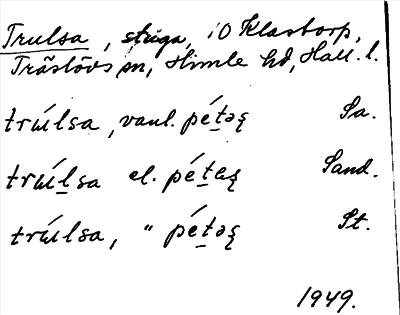 Trulsa, stuga, i O Klastorp,
Träslövs sn, Himle hd, Hall. l.
trúlsa, vanl. pétəş Sa.
trúlsa el. pétəş Sand.
trúlsa, " pétəş St.
1949.